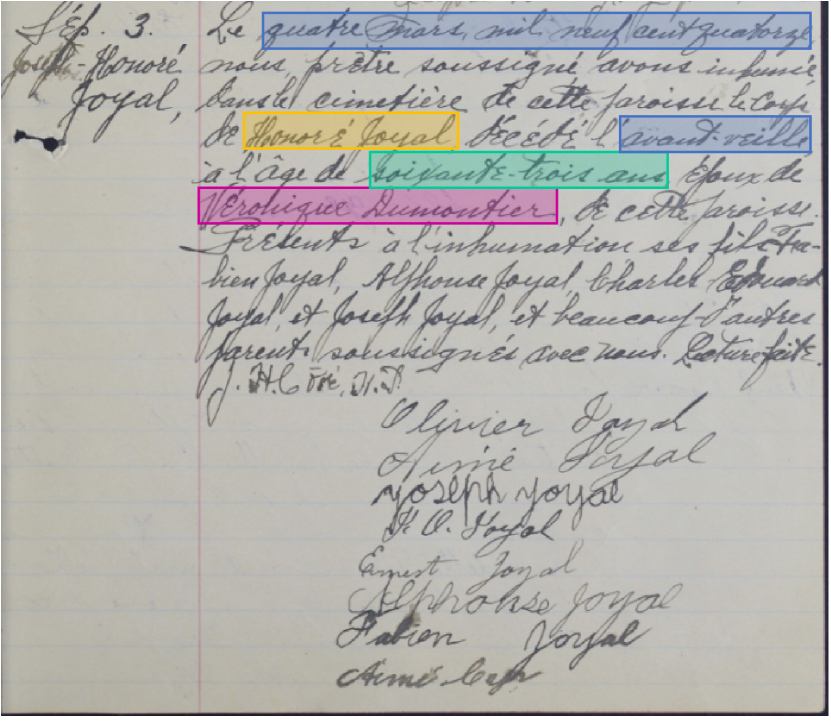 Sép. 3.
Joseph-Honoré
Joyal,
Le quatre mars, mil neuf cent quatorze,
nous, prêtre soussigné avons inhumé,
dans le cimetière de cette paroisse le corps
de Honoré Joyal, décédé l'avant-veille,
à l'âge de soixante-trois ans époux de
Véronique Dumontier, de cette paroisse.
Présents à l'inhumation ses fils Fa-
bien Joyal, Alphonse Joyal, Charles Edouard
Joyal, et Joseph Joyal, et beaucoup d'autres
parents soussignés avec nous. Lecture faite.
J. H.
Olivier Joyal
Aimé Joyal
Joseph Joyal
O. Joyal
Ernest Joyal
Alphonse Joyal
Fabien Joyal
Aimé